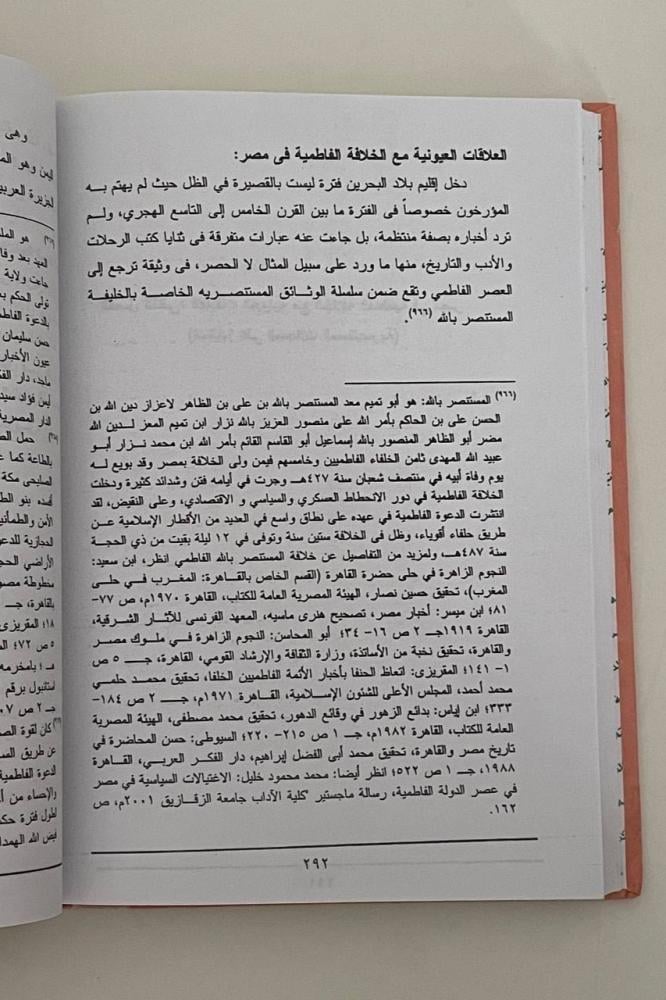 العلاقات العيونية مع الخلافة الفاطمية فى مصر:
دخل إقليم بلاد البحرين فترة ليست بالقصيرة في الظل حيث لم يهتم به
المؤرخون خصوصاً في الفترة ما بين القرن الخامس إلى التاسع الهجري، ولم
ترد أخباره بصفة منتظمة، بل جاءت عنه عبارات متفرقة فى ثنايا كتب الرحلات
والأدب والتاريخ، منها ما ورد على سبيل المثال لا الحصر، فى وثيقة ترجع إلى
العصر الفاطمي وتقع ضمن سلسلة الوثائق المستنصريه الخاصة بالخليفة
المستنصر بالله (٩٦٦).
(٩٦٦) المستنصر بالله: هو أبو تميم معد المستنصر بالله بن على بن الظاهر لاعزاز دين الله بن
الحسن على بن الحاكم بأمر الله على منصور العزيز بالله نزار ابن تميم المعز لـدين الله
مضر أبو الظاهر المنصور بالله إسماعيل أبو القاسم القائم بأمر الله ابن محمد نـزار أبـو
عبيد الله المهدى ثامن الخلفاء الفاطميين وخامسهم فيمن ولى الخلافة بمصر وقد بويع لـه
يوم وفاة أبيه في منتصف شعبان سنة ٤٢٧هـ وجرت في أيامه فتن وشدائد كثيرة ودخلت
الخلافة الفاطمية في دور الانحطاط العسكري والسياسي و الاقتصادي، وعلى النقيض، لقد
انتشرت الدعوة الفاطمية في عهده على نطاق واسع في العديد من الأقطار الإسلامية عـن
طريق حلفاء أقوياء، وظل فى الخلافة ستين سنة وتوفى في ١٢ ليلة بقيت من ذي الحجـة
سنة ٤٨٧هـ، ولمزيد من التفاصيل عن خلافة المستنصر بالله الفاطمي انظر، ابن سعيد:
النجوم الزاهرة في حلى حضرة القاهرة (القسم الخاص بالقـاهرة: المغـرب فـي حلـى
المغرب)، تحقيق حسين نصار، الهيئة المصرية العامة للكتاب، القاهرة ١٩٧٠م، ص ٧٧-
٨١؛ ابن ميسر: أخبار مصر، تصحيح هنرى ماسيه، المعهد الفرنسى للآثـار الشـرقية،
القاهرة ١٩١٩جـ ٢ ص ١٦- ٣٤؛ أبو المحاسن: النجوم الزاهرة فـي ملـوك مصـر
والقاهرة، تحقيق نخبة من الأساتذة، وزارة الثقافة والإرشاد القومي، القاهرة، جـــ ٥ ص
١- ١٤١؛ المقريزي: اتعاظ الحنفا بأخبار الأئمة الفاطميين الخلفا، تحقيق محمـد حلمـي
محمد أحمد، المجلس الأعلى للشئون الإسـلامية، القـاهرة ١٩٧١م، جـ ٢ ص ١٨٤-
٣٣٣؛ ابن إياس: بدائع الزهور في وقائع الدهور، تحقيق محمد مصطفى، الهيئة المصرية
العامة للكتاب، القاهرة ١٩٨٢م، جـ ١ ص ٢١٥- ٢٢٠؛ السيوطى: حسن المحاضرة في
تاريخ مصر والقاهرة، تحقيق محمد أبى الفضل إبراهيم، دار الفكـر العربـي، القـاهرة
١٩٨٨، جـ ١ ص ٥٢٢؛ انظر أيضا: محمد محمود خليل: الاغتيالات السياسية في مصر
في عصر الدولة الفاطمية، رسالة ماجستير "كلية الآداب جامعة الزقـازيق ٢٠٠١م، ص
١٦٢.
٢٩٢